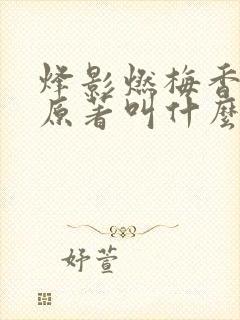 烽影燃梅香
原著叫什麼
妤萱